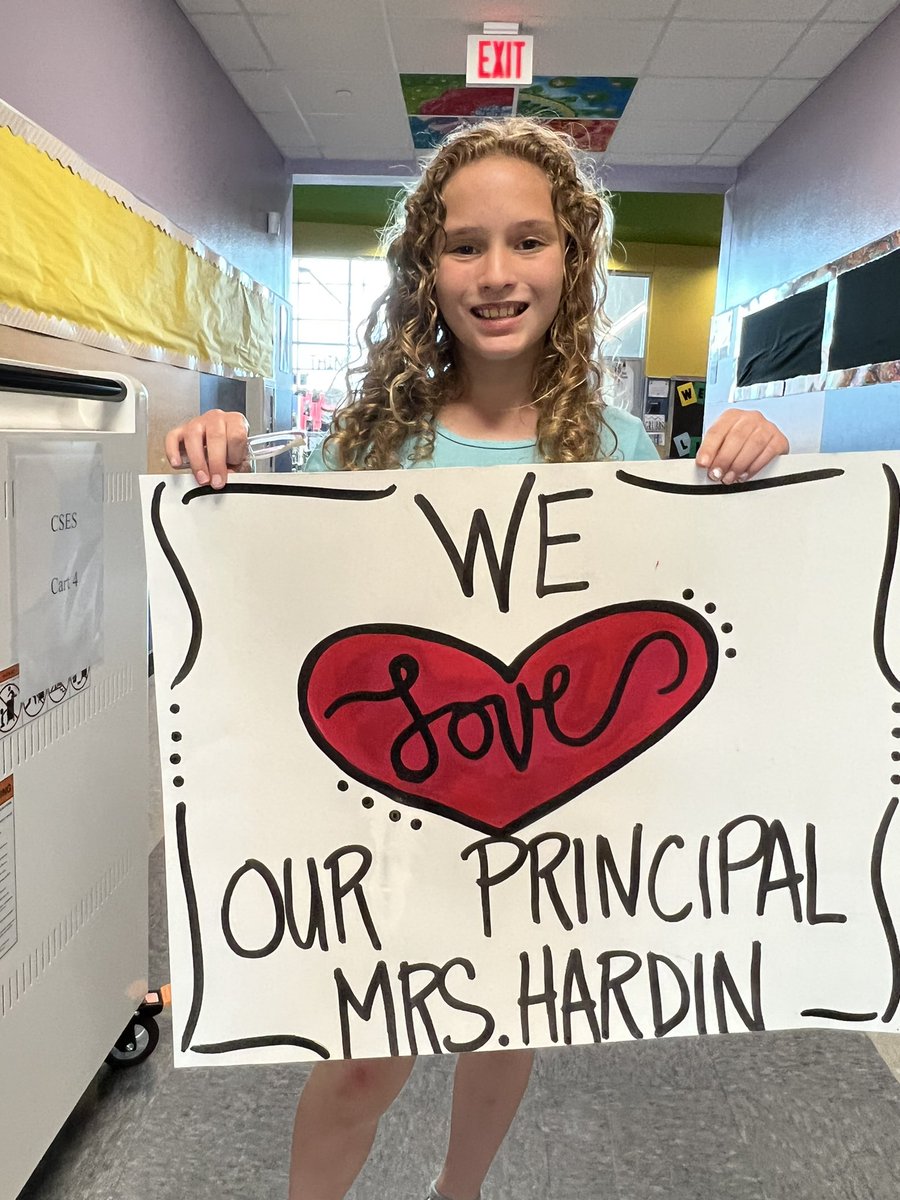 EXIT
WE
Love
OUR PRINCIPAL
MRS. HARDIN
CSES
Cart 4